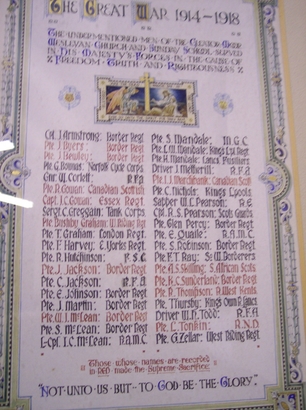 The Great War 1914-1918
The undermentioned men of the Cleator Moor
Wesleyan Church and Sunday School served
in His Majesty's Forces in the cause of
Freedom Truth and Righteousness
Cpl. J. Armstrong: Border Regt
Pte. J. Byers: Border Regt
Pte. J. Bewley: Border Regt
Pte. G. Bonnas: Norfolk Cycle Corps
Gnr. W. Corlett: R.F.A
Pte. R. Gowan: Canadian Scottish
Capt. J.C. Gowan: Essex Regt.
Sergt. C. Greggain: Tank Corps.
Graham: W. Riding Rgt
Pte. T. Graham: London Regt.
Pte. F. Harvey: E. Yorks Regt.
Pte. R. Hutchinson: F.S.C.
Pte. J. Jackson: Border Regt
Pte. C. Jackson: R.F.A
Pte. E. Johnson: Border Regt
Pte. J. Martin: Border Regt
Pte. W. J. McLean: Border Regt
Pte. S. McLean: Border Regt
L-Cpl. J.C. McLean: R.A.M.C.
Pte. S. Mandale: M.G.C
Pte. L.M. Mandale: Kings Lpl Regt
Pte. H. Mandale: Lancs. Fusiliers
Driver J. Metherill: R.F.A
Pte. J. Canadian Scott
Pte. C. Nichols: Kings Lpools
Sapper W. Pearson: R.E.
Cpl. R.S. Pearson: Scots Guards
Pte. Glen Percy: Border Regt.
Pte. E. Quaile: R.A.M.C
Pte. S. Robinson: Border Regt
Pte. F.T. Ray: St. W. Borderers
Pte. A.S. Skilling: S. African Scots
Pte. N.C. Sunderland: Border Regt
Pte. B. Thompson: R. West Kents
Pte. Thursby: Kings Own R. Lancs
Driver W.P. Todd: R.F.A
Pte. L. Tonkin: R.N.D
Pte. G. Zellar: West Riding Regt
Those whose names are recorded
in red made the Supreme Sacrifice
"Not unto us but to God be the Glory."